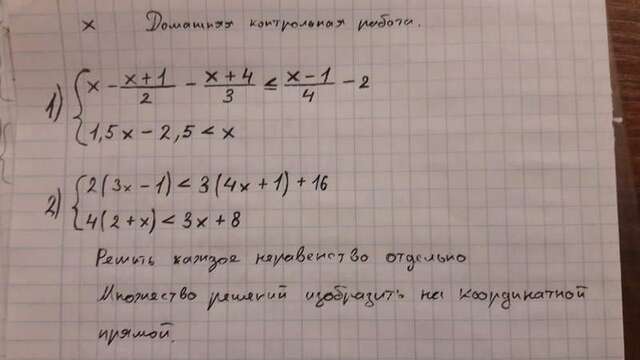 x Домашняя контрольная работа.
1) { x - (x+1)/2 - (x+4)/3 ≤ (x-1)/4 - 2
1,5x - 2,5 < x
2) { 2(3x-1) < 3(4x+1)+16
4(2+x) < 3x+8
Решить каждое неравенство отдельно
Множество решений изобразить на координатной
прямой.